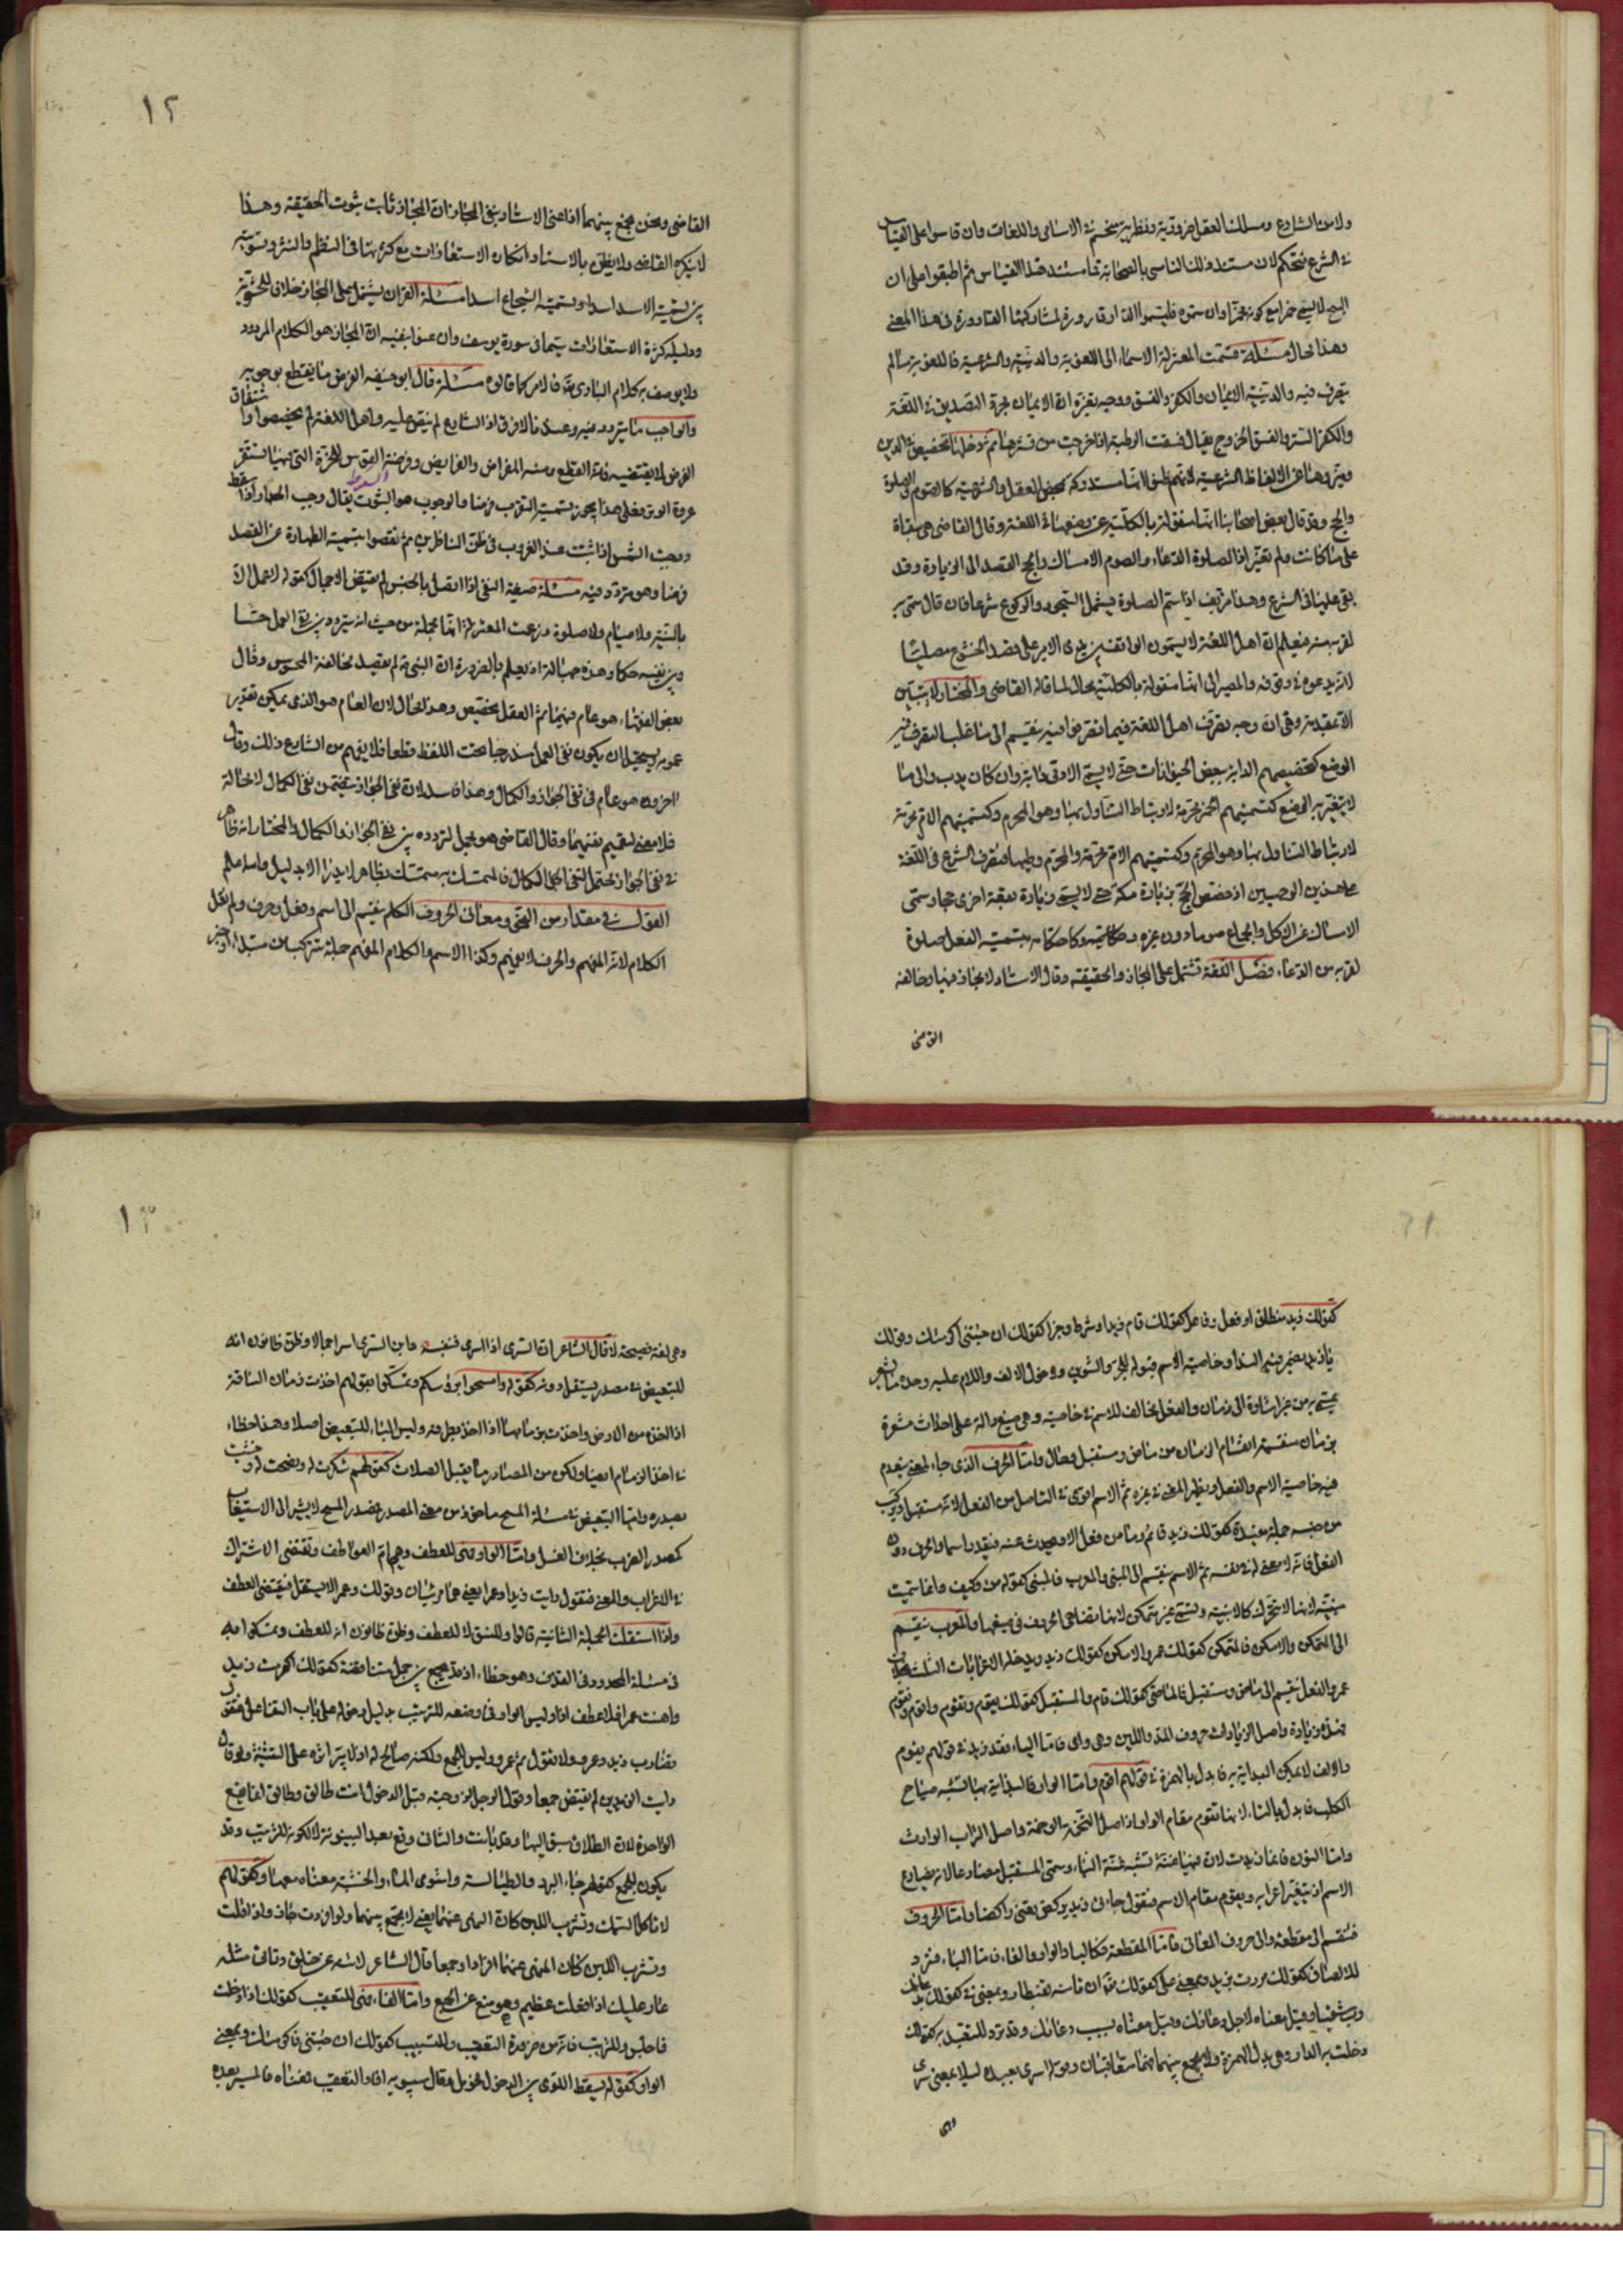 ولا من الشارع ومسلك العقل ضروريه ونظريه منحسم في الاسامي واللغات وان قاسوا على القياس
في الشرع فتحكم لان مستند ذلك التاسي بالصحابة فما مستند هذا القياس ثم اطبقوا على ان
البنج لا يسمى خمرا مع كونه مخمرا وان سموه فليسموا الدار قارورة لمشاركتها القارورة في هذا المعنى
وهذا محال مسئلة قسمت المعتزلة الاسماء الى اللغوية والدينية والشرعية فاللغوية ما لم
يتصرف فيه والدينية الايمان والكفر والفسق ووجه تغيره ان الايمان لمجرد التصديق في اللغة
والكفر الستر والفسق الخروج يقال فسقت الرطبة اذا خرجت من قشرها ثم دخلها تخصيص في الدين
وغيروها عن الالفاظ الشرعية لانهم ظنوا انها مستدركة بمحض العقل والشرعية كالصوم والصلوة
والحج وقد قال بعض اصحابنا انها منقولة بالكلية عن وضعها في اللغة وقال القاضي هي مبقاة
على ما كانت ولم تغير اذ الصلوة الدعاء والصوم الامساك والحج القصد الى الزيارة وقد
بقي علينا في الشرع وهذا مزيف اذ اسم الصلوة يشمل السجود والركوع شرعا فان قال سمي به
لقربه منه فيعلم ان اهل اللغة لا يسمون الواقف بين يدي الامير على قصد الخشوع مصليا
لانه يدعوه في وقوفه والمصير الى انها منقولة بالكلية محال لما قاله القاضي والمختار لا يتبين
الا بتقديمه وهي ان وجه تصرف اهل اللغة فيما تصرفوا فيه ينقسم الى ما غلب التصرف فيه
الوضع كتخصيصهم الدابة ببعض الحيوانات حتى لا يسمى الادمي دابة وان كان يدب والى ما
لا يتغير به الوضع كتسميتهم الخمر محرمة لارتباط التناول بها وهو المحرم وكتسميتهم الام محرمة
لارتباط التناول بها وهو المحرم وكتسميتهم الام محرمة والمحرم وطيها فتصرف الشرع في اللغة
على هذين الوجهين اذ خصص الحج بزيارة مكة حتى لا يسمى زيارة بقعة اخرى حجا وسمى
الامساك عن الاكل والجماع صوما دون غيره بتسمية الفعل صلوة
لقربه من الدعاء فصل اللغة تشتمل على المجاز والحقيقة وقال الاستاد لا مجاز فيها وخالفه
القاضي
١٢
القاضي ونحن نجمع بينهما اذ اعنى الاستاد بنفي المجاز ان المجاز ثابت ثبوت الحقيقة وهذا
لا ينكره القاضي ولا يظن بالاستاد انكار الاستعارات مع كثرتها في النظم والنثر وتسويته
بين تسمية الاسد اسدا وتسمية الشجاع اسدا مسئلة القران يشتمل على المجاز خلافا للحشوية
ودليله كثرة الاستعارات سيما في سورة يوسف وان عنوا بنفيه ان المجاز هو الكلام المردود
ولا يوصف به كلام الباري تع فالامر كما قالوه مسئلة قال ابو حنيفه الفرض ما يقطع بوجوبه
والواجب ما يتردد فيه وعندنا لا فرق اذ الشارع لم ينص عليه واهل اللغة لم يخصصوا واشتقاق
الفرض لا يقتضيه فانه القطع ومنه المفراض والفرايض وفرضة القوس للحزة التي فيها تستقر
عروة الوتر فعلى هذا يجوز تسمية التقرب فرضا والوجوب هو الثبوت يقال وجب الجدار اذا سقط
السقوط
ووجبت الشمس اذا ثبتت عند الغروب في ظن الناظرين ثم نقضوا بتسمية الطهارة عن الفصد
فرضا وهو متردد فيه مسئلة صيغة النفي اذا اتصل بالجنس لم يقتض الاجمال كقوله لا عمل الا
بالنية ولا صيام ولا صلوة وزعمت المعتزلة انها مجملة من حيث انه يتردد بين نفي العمل حسا
وبين نفيه حكما وهذه جهالة اذ يعلم بالضرورة ان النبي لم يقصد مخالفة المحسوس وقال
بعض الفقهاء هو عام فيهما ثم العقل يخصص وهذا محال لان العام هو الذي يمكن تقدير
عمومه ويستحيل ان يكون نفي العمل مندرجا تحت اللفظ قطعا فلا يفهم من الشارع ذلك وقال
اخرون هو عام في نفي الجواز والكمال وهذا فاسد لان نفي الجواز يتضمن نفي الكمال لا محالة
فلا معنى لتعميم نفيهما وقال القاضي هو مجمل لتردده بين نفي الجواز والكمال والمختار انه ظاهر
في نفي الجواز محتمل لنفي الكمال فالمتمسك به متمسك بظاهر لا يدرا الا بدليل والله اعلم
القول في مقدار من النحو ومعاني الحروف الكلم ينقسم الى اسم وفعل وحرف ولم نقل
الكلام لانه المفهم والحرف لا يفهم وكذا الاسم والكلام المفهم جملة تتركب من مبتدا وخبر
كقولك زيد منطلق او فعل وفاعل كقولك قام زيد او شرط وجزا كقولك ان جئتني اكرمتك وقولك
يا زيد يضمر فيه الندا وخاصية الاسم قبوله للجر والتنوين ودخول الالف واللام عليه وحده ما يشعر
بمسمى به من غير اشارة الى زمان والفعل يخالف للاسم في خاصيته وهي صيغ دالة على احداث مشعرة
بزمان منقسمة انقسام الزمان من ماض ومستقبل وحال واما الحرف الذي جاء لمعنى ينعدم
فيه خاصية الاسم والفعل ويظهر المعنى في غيره ثم الاسم اقوى في التاصل من الفعل لانه مستقبل ويركب
من جنسه جملة مفيدة كقولك زيد قائم وما من فعل الا ويحدث عنه فيقدر اسما والحرف دون
الفعل فانه لا معنى له في نفسه ثم الاسم ينقسم الى المبني والمعرب فالمبني كقوله من وكيف وانما سميت
مبنية لانها لا تتحرك كالابنية وتسمى غير متمكن لانها تضاهي الحروف في صيغها والمعرب ينقسم
الى المتمكن والامكن فالمتمكن كقولك عمر والامكن كقولك زيد ويدخله الاعرابات الثلث بخلاف
عمر والفعل ينقسم الى ماض ومستقبل فالماضي كقولك قام والمستقبل كقولك يقوم وتقوم واقوم ونقوم
فيه زيادة واصل الزيادات حروف المد واللين وهي واي فاما الياء فقد زيد في قولهم يقوم
والالف لا يمكن البداية به فابدل بالهمزة في قولهم اقوم واما الواو فالبداية بها تشبه صياح
الكلب فابدل بالتاء لانها تقوم مقام الواو اذ اصل التخمة الوخمة واصل التراث الوارث
واما النون فانما زيدت لان فيها غنة تشبه غنة الهاء وسمي المستقبل مضارعا لانه يضارع
الاسم اذ يتغير اعرابه ويقوم مقام الاسم فتقول جاءني زيد يركض يعني راكضا واما الحروف
فتنقسم الى مقطعة والى حروف المعاني فاما المقطعة فكالباء والواو والفاء فاما الباء فترد
للالصاق كقولك مررت بزيد وبمعنى على كقولك من ان تامنه بقنطار وبمعنى في كقولك
وقيل معناه لاجل دعائك وقيل معناه بسبب دعائك وقد ترد للتعقيب كقولك
دخلت به الدار وهي بدل الهمزة ولا يجمع بينهما فهما متعاقبان وقوله اسرى بعبده ليلا بمعنى سرى
وهي
١٣
وهي لغة فصيحة لا قال الشاعر ان السري اذا اسرى فنفسه وابن السري اسراهما وظن ظانون انه
للتبعيض في مصدر يستقل دونه كقوله وامسحوا برؤسكم وتمسكوا بقولهم اخذت زمان الناقة
اذا اخذه من الارض واخذت بزمامها اذا اخذ بطرفه وليس الباء للتبعيض اصلا وهذا خطاء
في اخذ الزمام ايضا ولكن من المصادر ما يقبل الصلات كقولهم شكرت له ونصحت له وخشيت
بصدره وانما التبعيض في مسئلة المسح ماخوذ من معنى المصدر فمصدر المسح لا يشير الى الاستيعاب
كمصدر الضرب بخلاف الغسل واما الواو فهي للعطف وهي ام العواطف وتقتضي الاشتراك
في الاعراب والمعنى فتقول رايت زيدا وعمرا يعني هما مرئيان وقولك وعمر لا يستقل فيقتضي العطف
واذا استقلت الجملة الثانية قالوا وللنسق لا للعطف وظن ظانون انه للعطف وتمسكوا به
في مسئلة المحدود في القذف وهو خطاء اذ قد تجمع بين جمل متناقضة كقولك اكرمت زيدا
واهنت عمرا فلا عطف اذا وليس الواو في وضعه للترتيب بدليل دخوله على باب التفاعل فتقول
تضارب زيد وعمرو ولا تقول ثم عمرو وليس للجمع ولكنه صالح له اذ لا يترا ثره على التثنية ولو قال
رايت الزيدين لم يقتض جمعا وقول الرجل لزوجته قبل الدخول انت طالق وطالق انما تقع
الواحدة لان الطلاق سبق اليها وقد بانت والثاني وقع بعد البينونة لا لكونه للترتيب وقد
يكون للجمع كقولهم جاء البرد والطيالسة واستوى الماء والخشبة معناه معها وكقولهم
لا تاكل السمك وتشرب اللبن كان النهي عنهما يعني لا يجمع بينهما ولو افردت جاز ولو قلت
وتشرب اللبن كان المنهي عنهما افرادا وجمعا قال الشاعر لا تنه عن خلق وتاتي مثله
عار عليك اذا فعلت عظيم وهو منع عن الجمع واما الفاء فهي للتعقيب كقولك اذا دخلت
فاجلس وللترتيب فانه من ضرورة التعقيب وللتسبيب كقولك ان جئتني فاكرمتك وبمعنى
الواو كقوله بسقط اللوى بين الدخول فحومل وقال سيبويه افاد التعقيب معناه فالمسير بعده